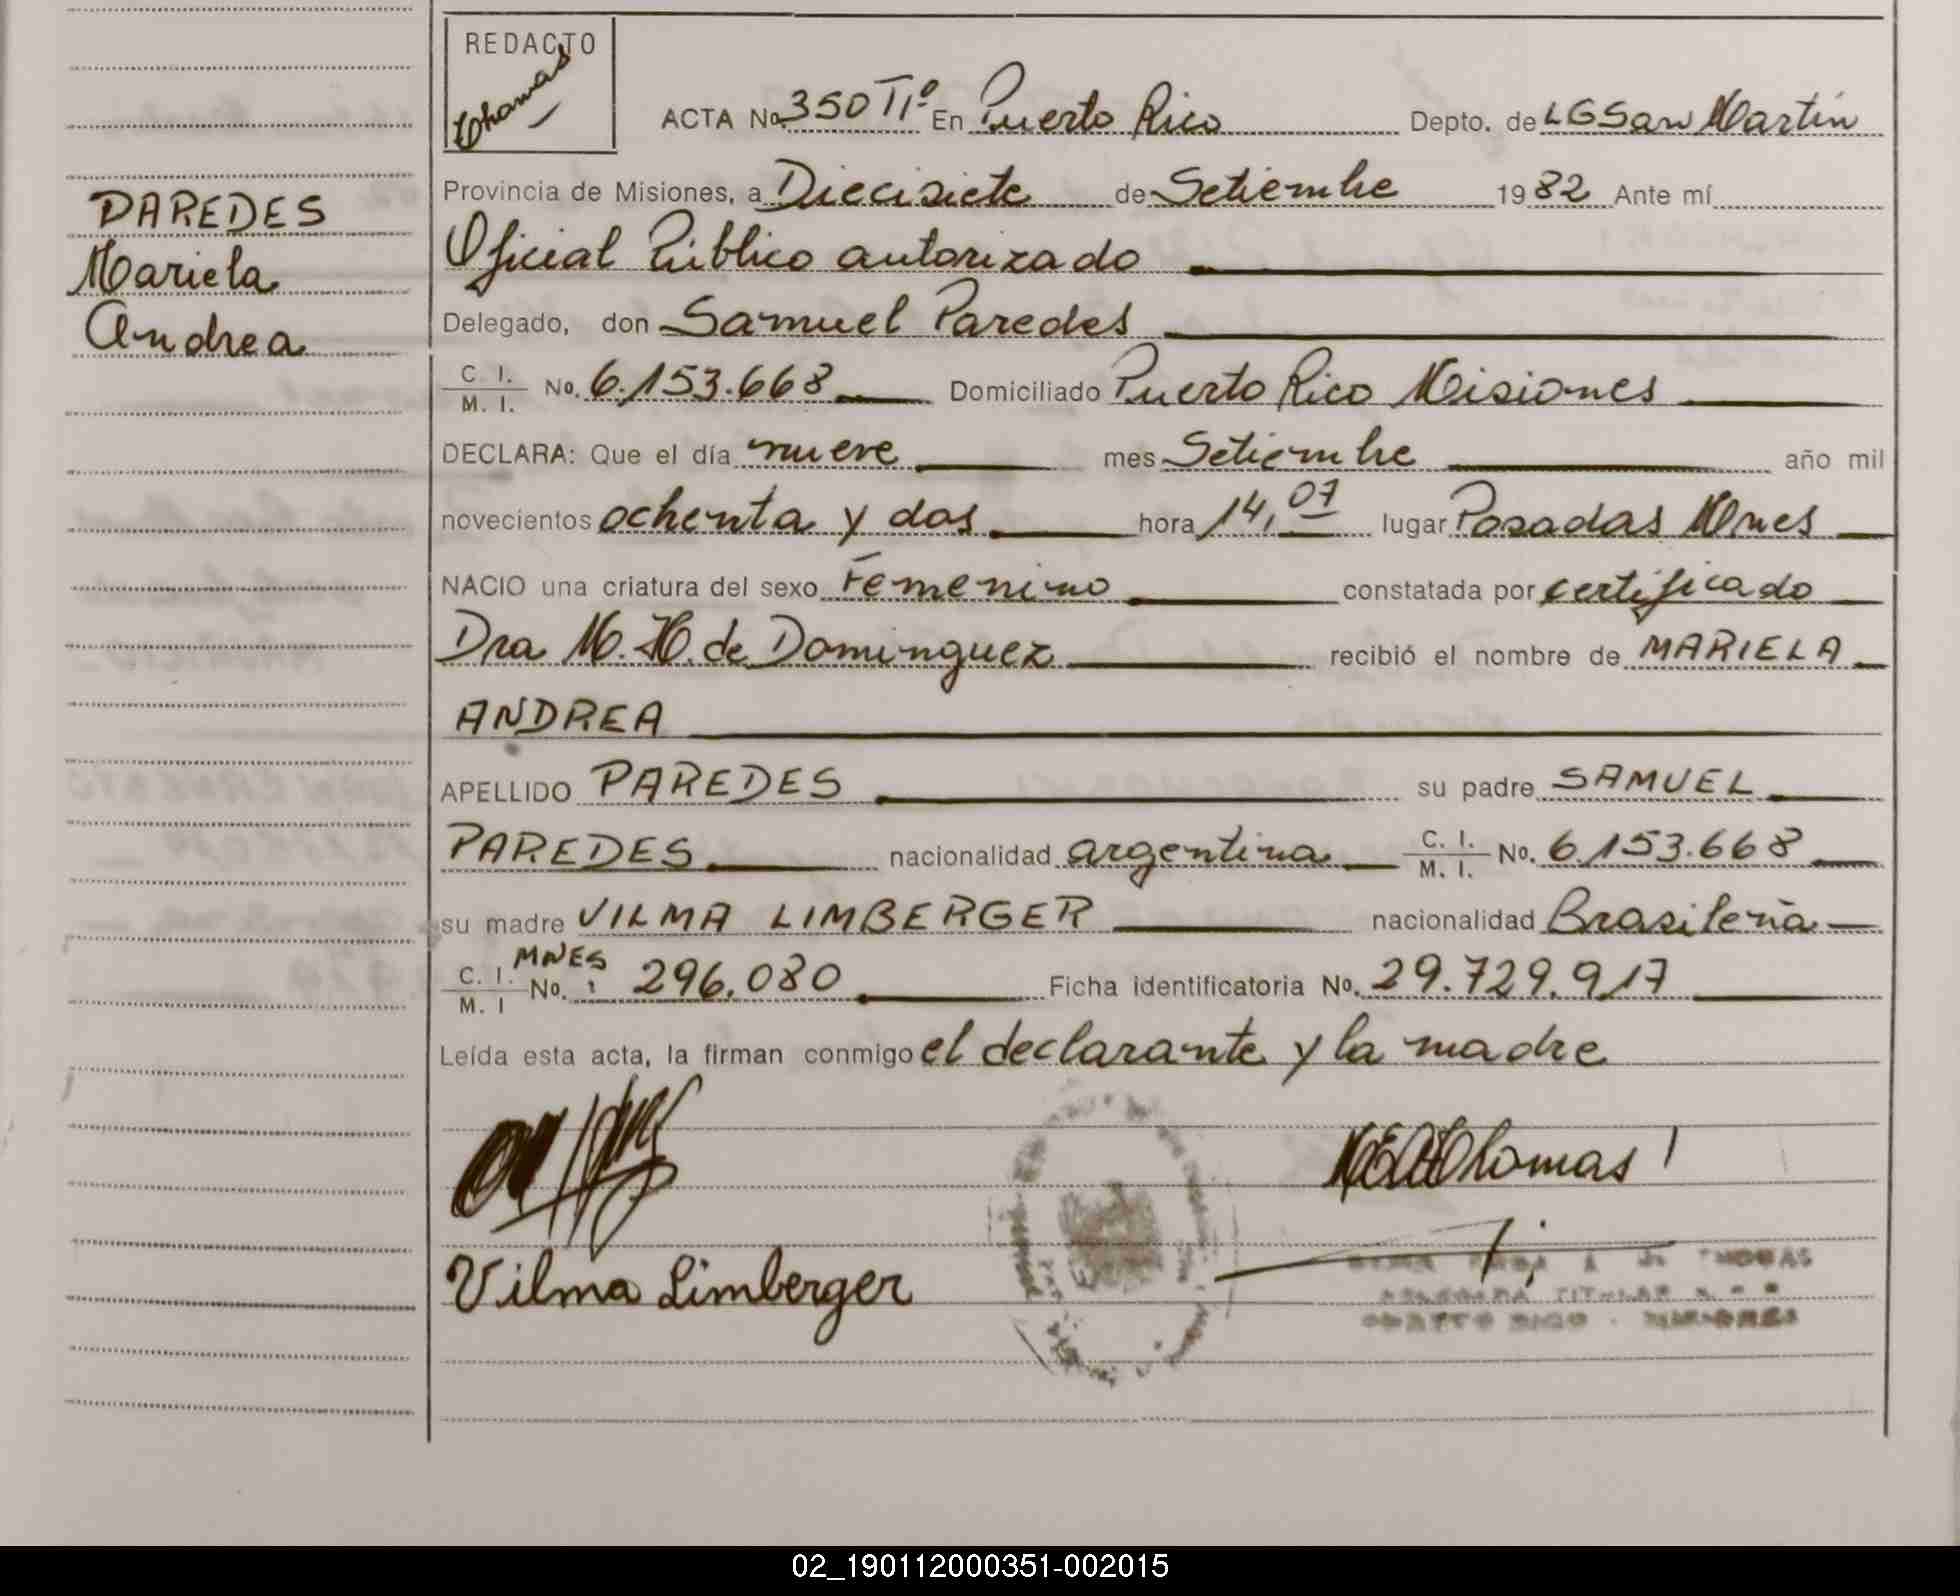 REDACTO
Thomas
ACTA No. 350 TIº En Puerto Rico Depto. de LGSan Martín
PAREDES
Mariela
Andrea
Provincia de Misiones, a Diecisiete de Setiembre 1982 Ante mí
Oficial Público autorizado
Delegado, don Samuel Paredes
C. I. M. I. No. 6.153.668 Domiciliado Puerto Rico Misiones
DECLARA: Que el día nueve mes Setiembre año mil
novecientos ochenta y dos hora 14,07 lugar Posadas Mnes
NACIO una criatura del sexo Femenino constatada por certificado
Dra M. H. de Dominguez recibió el nombre de MARIELA
ANDREA
APELLIDO PAREDES su padre SAMUEL
PAREDES nacionalidad argentina C. I. M. I. No. 6.153.668
su madre VILMA LIMBERGER nacionalidad Brasileña
C. I. M. I No. MNES : 296.080 Ficha identificatoria No. 29.729.917
Leída esta acta, la firman conmigo el declarante y la madre
Thomas
Vilma Limberger
THOMAS
TITULAR
PUERTO RICO - MISIONES
02_190112000351-002015